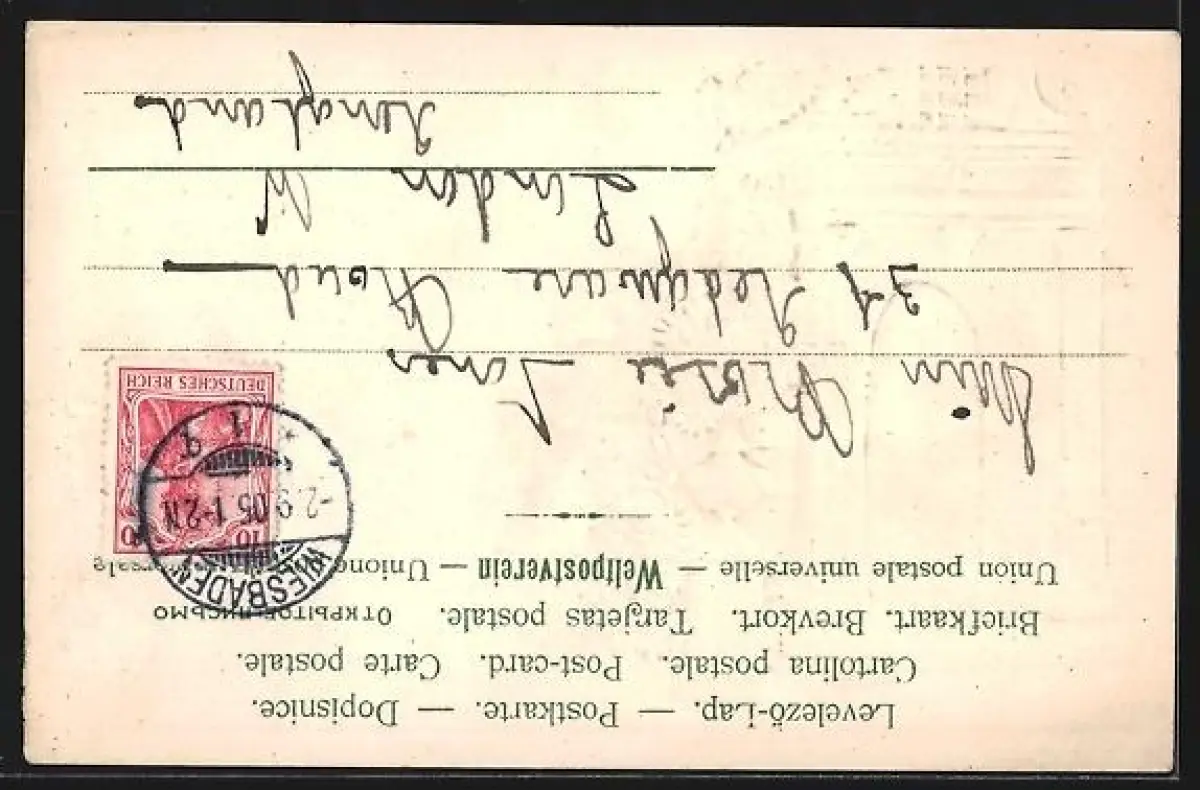 Levelező-Lap. — Postkarte. — Dopisnice.
Cartolina postale. Post-card. Carte postale.
Briefkaart. Brevkort. Tarjetas postale. ОТКРЫТОЕ ПИСЬМО
Union postale universelle — Weltpostverein — Unione
10 10
DEUTSCHES REICH
WIESBADEN
-2.9.05.1-2N
* 1 q
Miss Rosie Jones
31 Road
London W
England